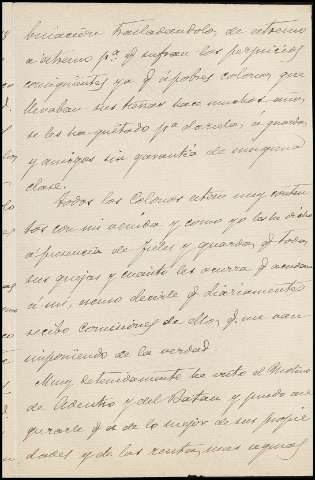 buiación trasladandolos de estremo
a estremo pª. q̃ sufran los perjuicios
consiguientes ya q̃ á pobres colonos que
llevaban sus tierras hace muchos años,
se les ha quitado pª darselas á guardas
y amigos sin garantía de ninguna
clase.
Todos los Colonos estan muy conten
tos con mi venida y como yo les he dicho
á presencia de Jueles y guardas, q̃ todas
sus quejas y cuanto les ocurra q̃ acudan
á mi, escuso decirle q̃ diariamente
recibo comisiones de ellos, q̃ me van
imponiendo de la verdad.
Muy detenidamente he visto el Molino
de Adentro y del Batan y puedo ase
gurarle q̃ es de lo mejor de sus propie
dades y de las rentas, mas seguras